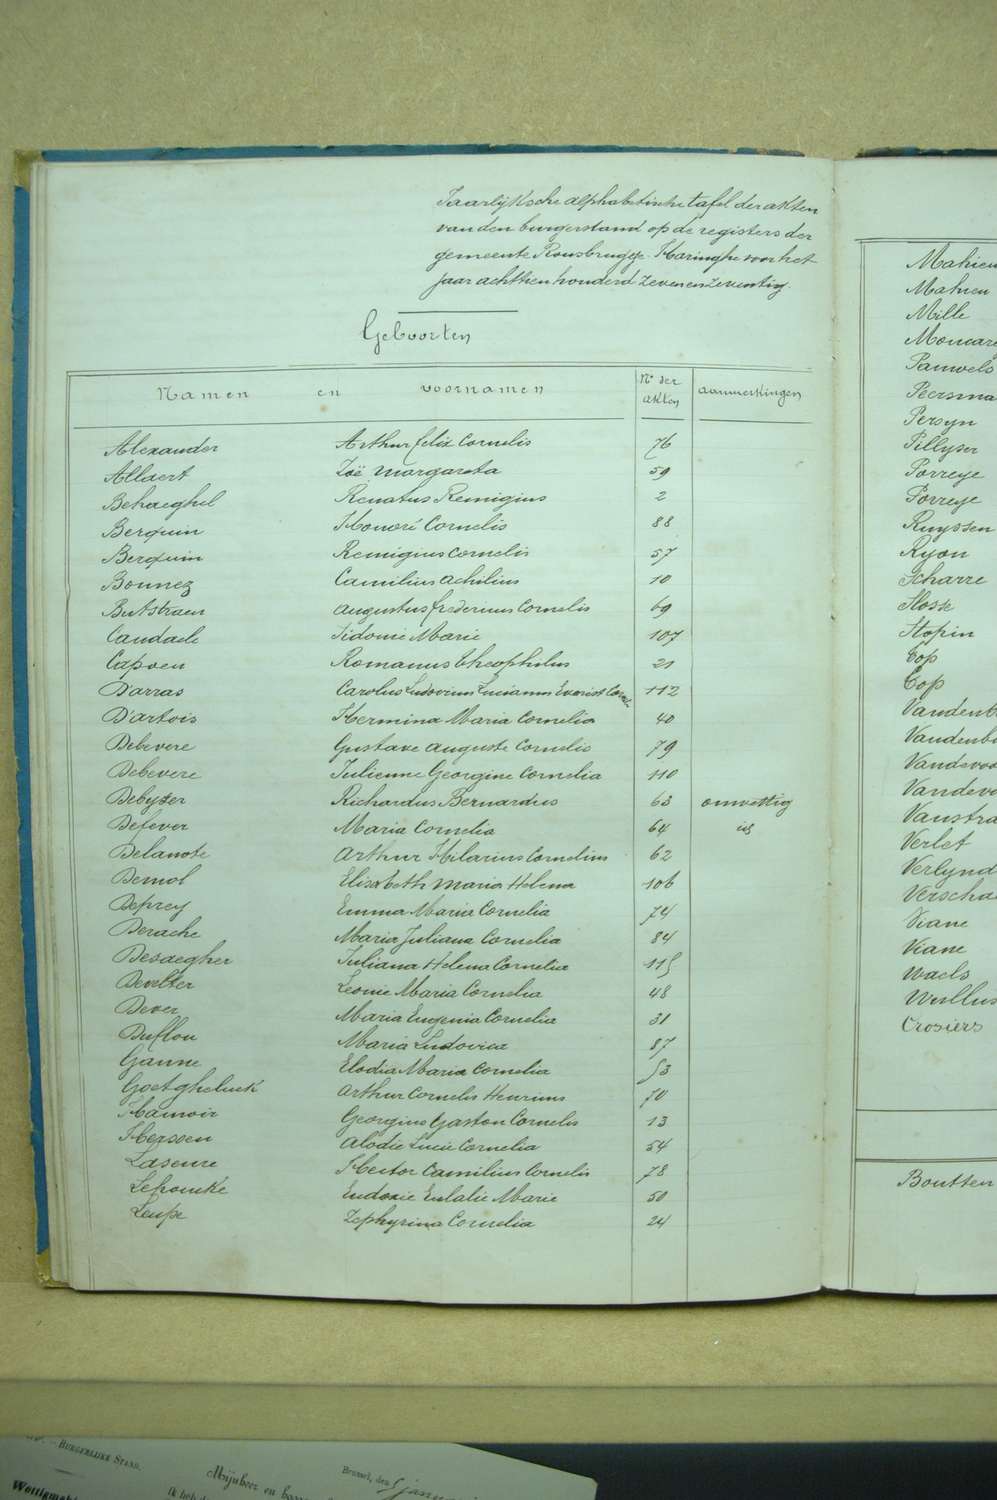 Jaarlijksche alphabetische tafel der akten
van den burgerstand op de registers der
gemeente Rousbrugge-Haringhe voor het
jaar achttien honderd zeven en zeventig.
Geboorten
Namen en voornamen N° der akten aanmerkingen
Alexander Arthur felix Cornelis 76
Allaert Zoë Margareta 59
Behaeghel Renatus Remigius 2
Berquin Honoré Cornelis 88
Berquin Remigius Cornelis 57
Bonnez Camilius Achilius 10
Butstraen Augustus Cornelis 69
Caudaele Sidonie Marie 107
Capoen Romanus theophilus 21
D'arras Carolus Ludovicus Lucianus Evarist 112
D'artois Hermina Maria Cornelia 40
Debevere Gustave Auguste Cornelis 79
Debevere Julienne Georgine Cornelia 110
Debyser Richardus Bernardus 63 onwettig
Defever Maria Cornelia 64 id
Delanote Arthur Hilarius Cornelius 62
Demol Elisabeth Maria Helena 106
Deprey Emma Maria Cornelia 74
Derache Maria Juliana Cornelia 84
Desaegher Juliana Helena Cornelia 115
Develter Leonie Maria Cornelia 48
Dever Maria Eugenia Cornelia 31
Duflou Maria Ludovica 87
Ganne Elodia Maria Cornelia 53
Goetgheluck Arthur Cornelis Henricus 70
Hamoir Georgius Gaston Cornelis 13
Herssen Alodie Lucie Cornelia 54
Laseure Hector Camilius Cornelis 78
Lepoucke Eudoxie Eulalie Marie 50
Leupe Zephyrina Cornelia 24
Mahieu
Mahieu
Mille
Pauwels
Persyn
Pillyser
Porreye
Porreye
Ruyssen
Ryon
Scharre
Stopin
Top
Top
Verlet
Viane
Viane
Waels
Crosiers
Boutten
Burgerlijke Stand.
Brussel, den 5
Mijnheer en